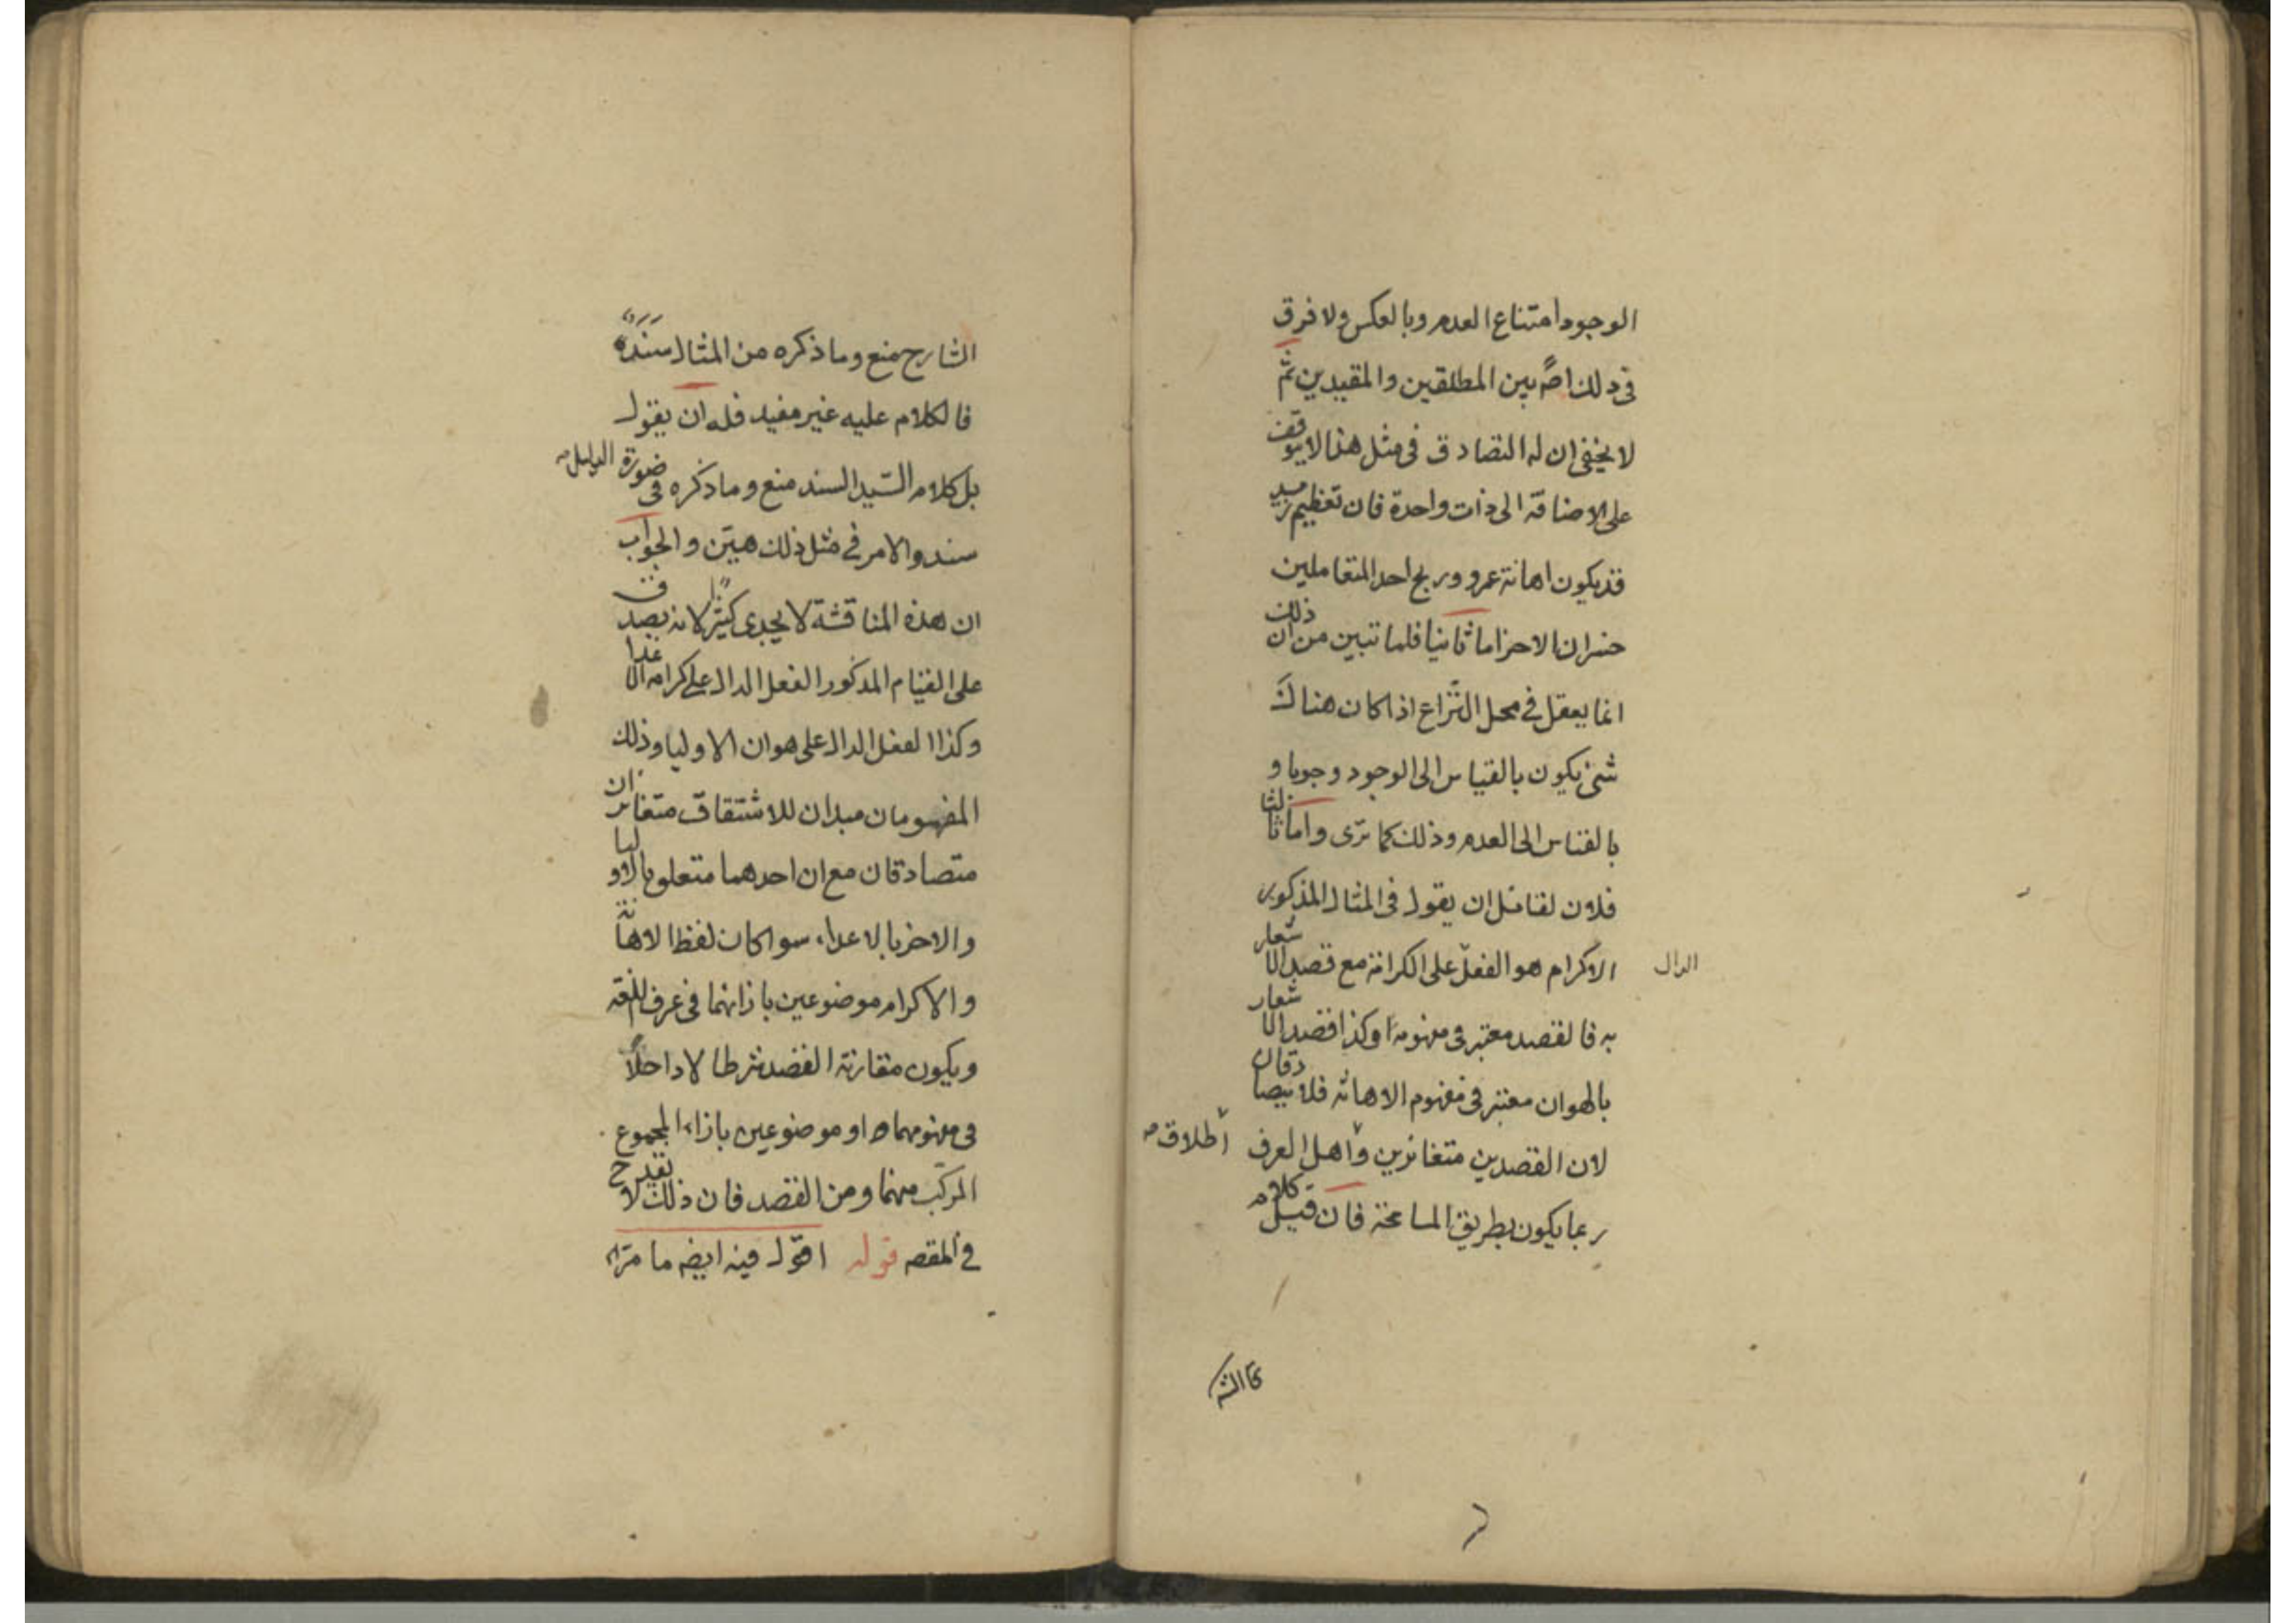 الوجود امتناع العدم وبالعكس ولا فرق
فى ذلك اصً بين المطلقين والمقيدين ثم
لا يخفى ان له التصادق فى مثل هذا لا يتوقف
على الاضافة الى ذات واحدة فان تعظيم زيد
قد يكون اهانة عمرو وربح احد المتعاملين
خسران الاخر اما ثانيا فلما تبين من ان ذلك
انما يعقل فى محل النزاع اذا كان هناك
شئ يكون بالقياس الى الوجود وجوبا و
بالقياس الى العدم وذلك كما ترى واما ثالثا
فلان لقائل ان يقول فى المثال المذكور
الاكرام هو الفعل على الكرامة مع قصد الاشعار
الدال
به فالقصد معتبر فى مفهومه وكذا قصد الاشعار
بالهوان معتبر فى مفهوم الاهانة فلا يتصادقان
لان القصدين متغائرين واهل العرف
اطلاق
ربما يكون بطريق المسامحة فان قيل كلام
الشارح منع وما ذكره من المثال سنده
فالكلام عليه غير مفيد فله ان يقول
بل كلام السيد السند منع وما ذكره فى صورة الدليل
سند والامر فى مثل ذلك هين والجواب
ان هذه المناقشة لا يجدى كثيرا لانه يصدق
على القيام المذكور الفعل الدال على كرامه الاعدا
وكذا الفعل الدال على هوان الاوليا وذلك
المفهومان مبدان للاشتقاق متغايران
متصادقان مع ان احدهما متعلق بالاوليا
والاخر بالاعداء سوا كان لفظا الاهانة
والاكرام موضوعين بازائهما فى عرف اللغة
ويكون مقارنة القصد شرطا لا داخلاً
فى مفهومهما او موضوعين بازاء المجموع
المركب منهما ومن القصد فان ذلك لا يقدح
فى المقصه قوله اقول فيه ايضه ما مر